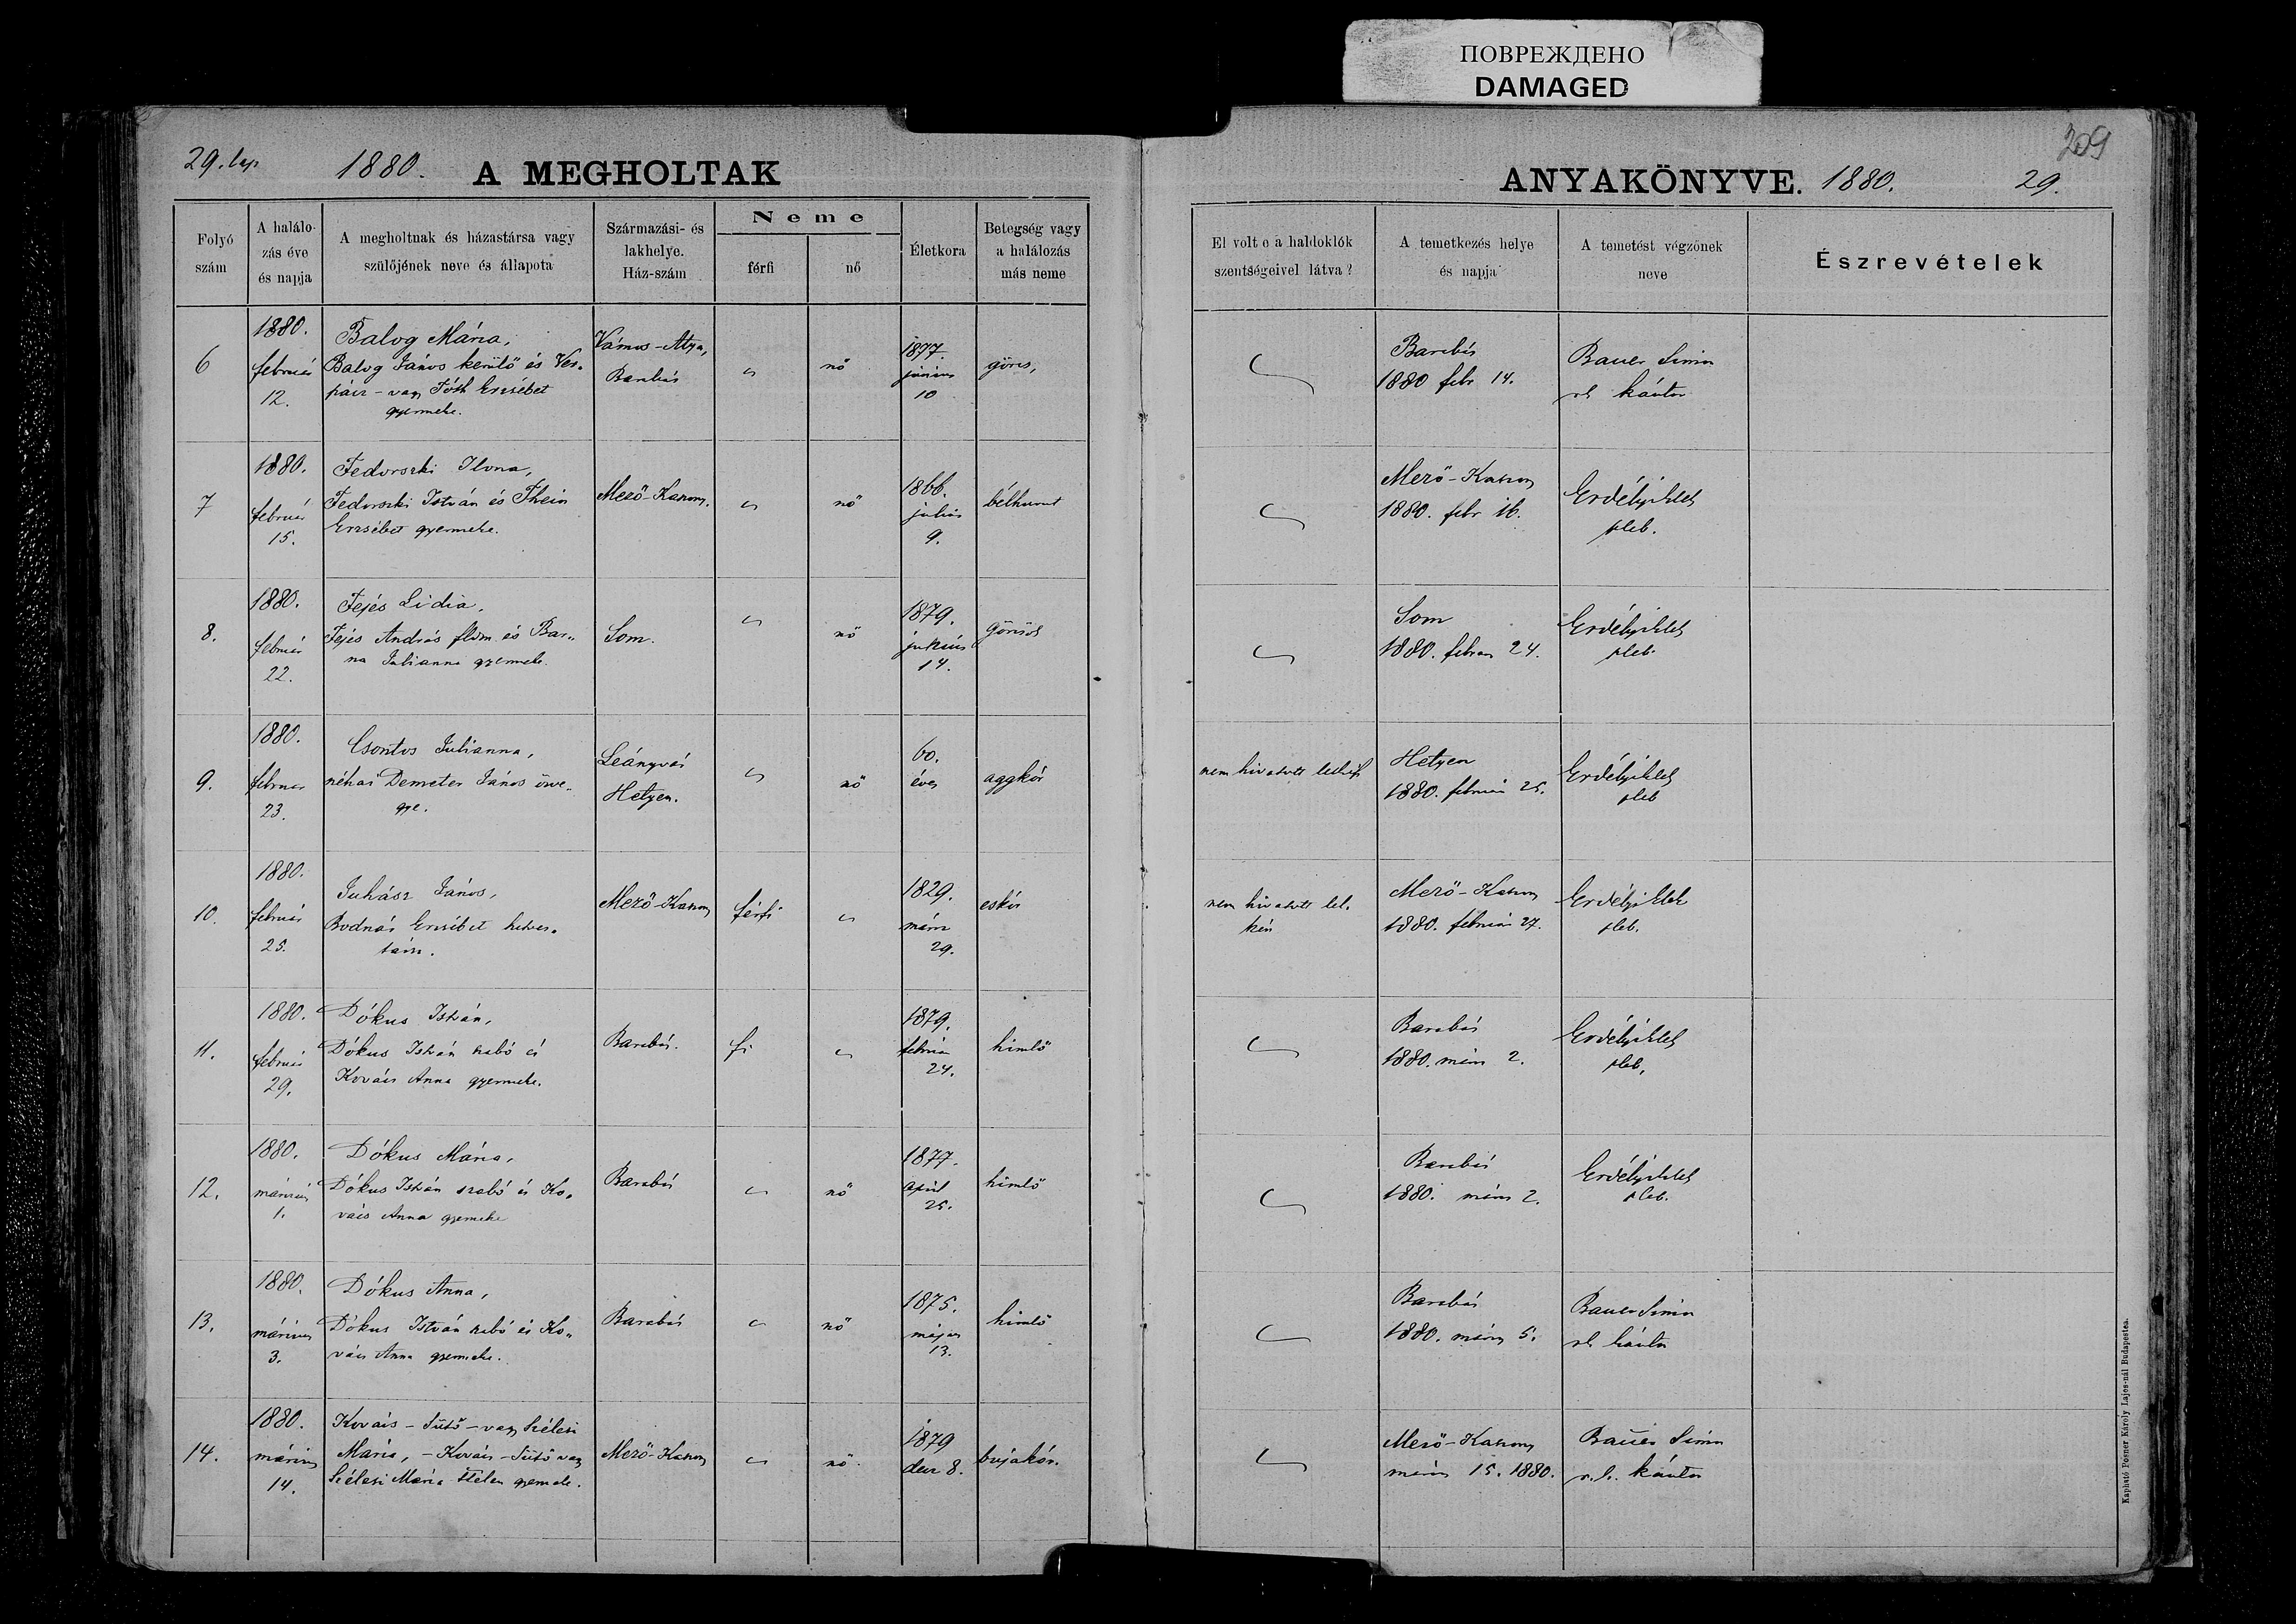 ПОВРЕЖДЕНО
DAMAGED
309
29. lap.
1880.
A MEGHOLTAK
ANYAKÖNYVE.
1880.
29.
Folyó
szám
A halálo-
zás éve
és napja
A megholtnak és házastársa vagy
szülőjének neve és állapota
Származási- és
lakhelye.
Ház-szám
Neme
férfi
nő
Életkora
Betegség vagy
a halálozás
más neme
El volt e a haldoklók
szentségeivel látva?
A temetkezés helye
és napja
A temetést végzőnek
neve
Észrevételek
6
1880.
február
12.
Balog Mária,
Balog János kerülő és Ves„
páir - vagy Tóth Erzsébet
gyermeke.
Vámos-Atya,
Barabás
nő
1877.
június
10
görcs,
Barabás
1880 febr 14.
Bauer Simon
kántor
7
1880.
február
15.
Fedorszki Ilona,
Fedorszki István és Thein
Erzsébet gyermeke.
Mező-Kaszony.
nő
1866.
július
9.
bélhurut
Mező-Kaszony
1880. febr 16.
Erdélyi
pleb.
8.
1880.
február
22.
Fejés Lidia,
Fejés András fldm. és Bar„
na Julianna gyermeke.
Som.
nő
1879.
június
14.
görcsök
Som
1880. febru 24.
Erdélyi
pleb.
9.
1880.
február
23.
Csontos Julianna,
néhai Demeter János özve„
gye.
Leányvár
Hetyen.
nő
60.
éves
aggkór
nem hivatott lelkész
Hetyen
1880. február 25.
Erdélyi
pleb
10.
1880.
február
25.
Juhász János,
Bodnár Erzsébet
társ.
Mező-Kaszony
férfi
1829.
márcz
29.
eskór
nem hivatott lel.
kész
Mező-Kaszony
1880. február 27.
Erdélyi
pleb.
11.
1880.
február
29.
Dókus István,
Dókus István szabó és
Kovács Anna gyermeke.
Barabás.
fi
1879.
február
24.
himlő
Barabás
1880. márcz 2.
Erdélyi
pleb.
12.
1880.
márczius
1.
Dókus Mária,
Dókus István szabó és Ko„
vács Anna gyermeke
Barabás
nő
1877.
april
25.
himlő
Barabás
1880. márcz 2.
Erdélyi
pleb.
13.
1880.
márczius
3.
Dókus Anna,
Dókus István szabó és Ko„
vács Anna gyermeke.
Barabás
nő
1875.
május
13.
himlő
Barabás
1880. márcz 5.
Bauer Simon
kántor
14.
1880.
márczius
14.
Kovács - Sütő - vagy Szélesi
Mária, - Kovács - Sütő vagy
Szélesi Mária gyermeke.
Mező-Kaszony
nő
1879
decz 8.
bujakór.
Mező-Kaszony
márcz 15. 1880.
Bauer Simon
r. k. kántor
Kapható Posner Károly Lajos-nál Budapesten.